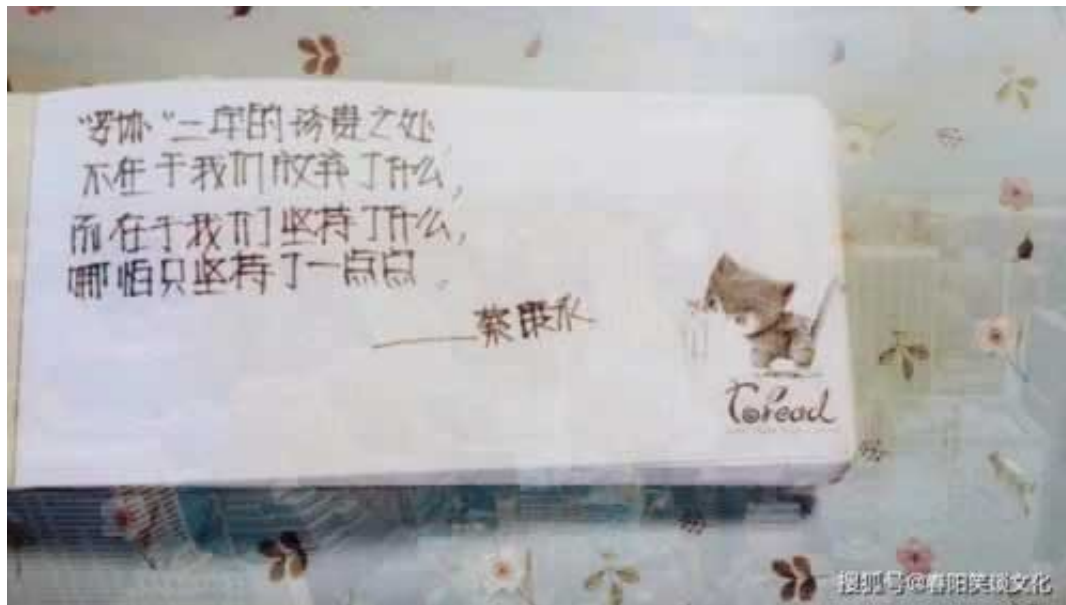 “妥协“二字的珍贵之处
不在于我们放弃了什么,
而在于我们坚持了什么,
哪怕只坚持了一点点。
——蔡康永
Toread
搜狐号@春阳笑谈文化